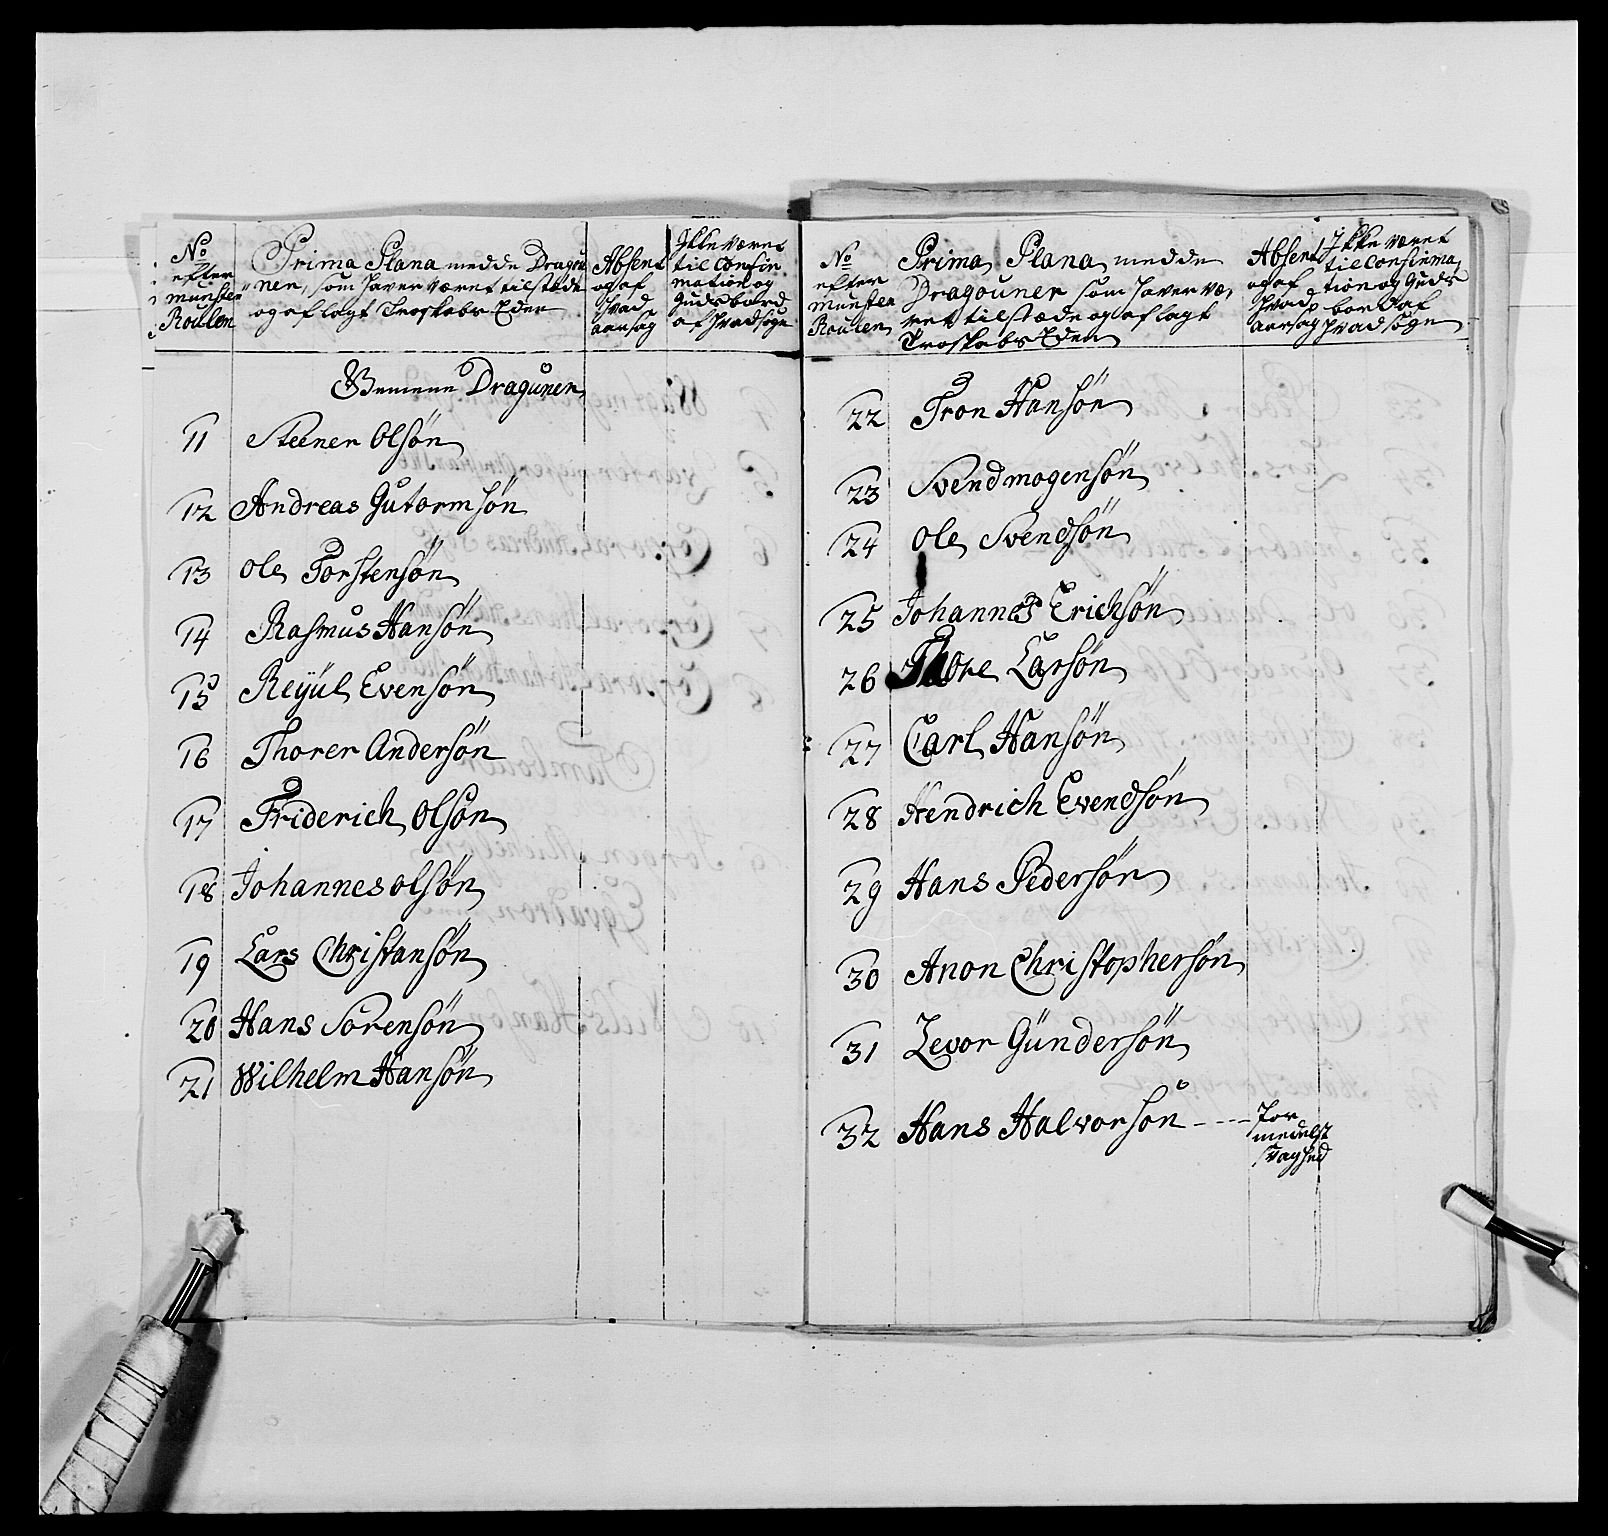 No
efter
munster
Roulen
Prima Plana medde Dragou
nen, som haver været tilstede
og aflagt Troskabs Eden
Absent
og af
hvad
aarsag
Ikke været
til Confir
mation og
Guds bord
af hvad sogn
Gemene Dragunen
11 Steener Olsøn
12 Andreas Gutormsøn
13 Ole Torstensøn
14 Rasmus Hansøn
15 Reyül Evensøn
16 Thorer Andersøn
17 Friderich Olsøn
18 Johannes olsøn
19 Lars Christansøn
20 Hans Sørensøn
21 Wilhelm Hansøn
No
efter
munster
Roulen
Prima Plana medde
Dragouner som haver væ,
ret tilstæde og aflagt
Troskabs Eden
Absent
og af
hvad
aarsag
Ikke været
til Confirma,
tion og Guds
bord af
hvad sogn
22 Tron Hansøn
23 Svend mogensøn
24 Ole Svendsøn
25 Johannes Erichsøn
26 Thore Larsøn
27 Carl Hansøn
28 Hendrich Evendsøn
29 Hans Pedersøn
30 Anon Christophersøn
31 Levor Gündersøn
32 Hans Halvorsøn ---- For
medelst
svaghed